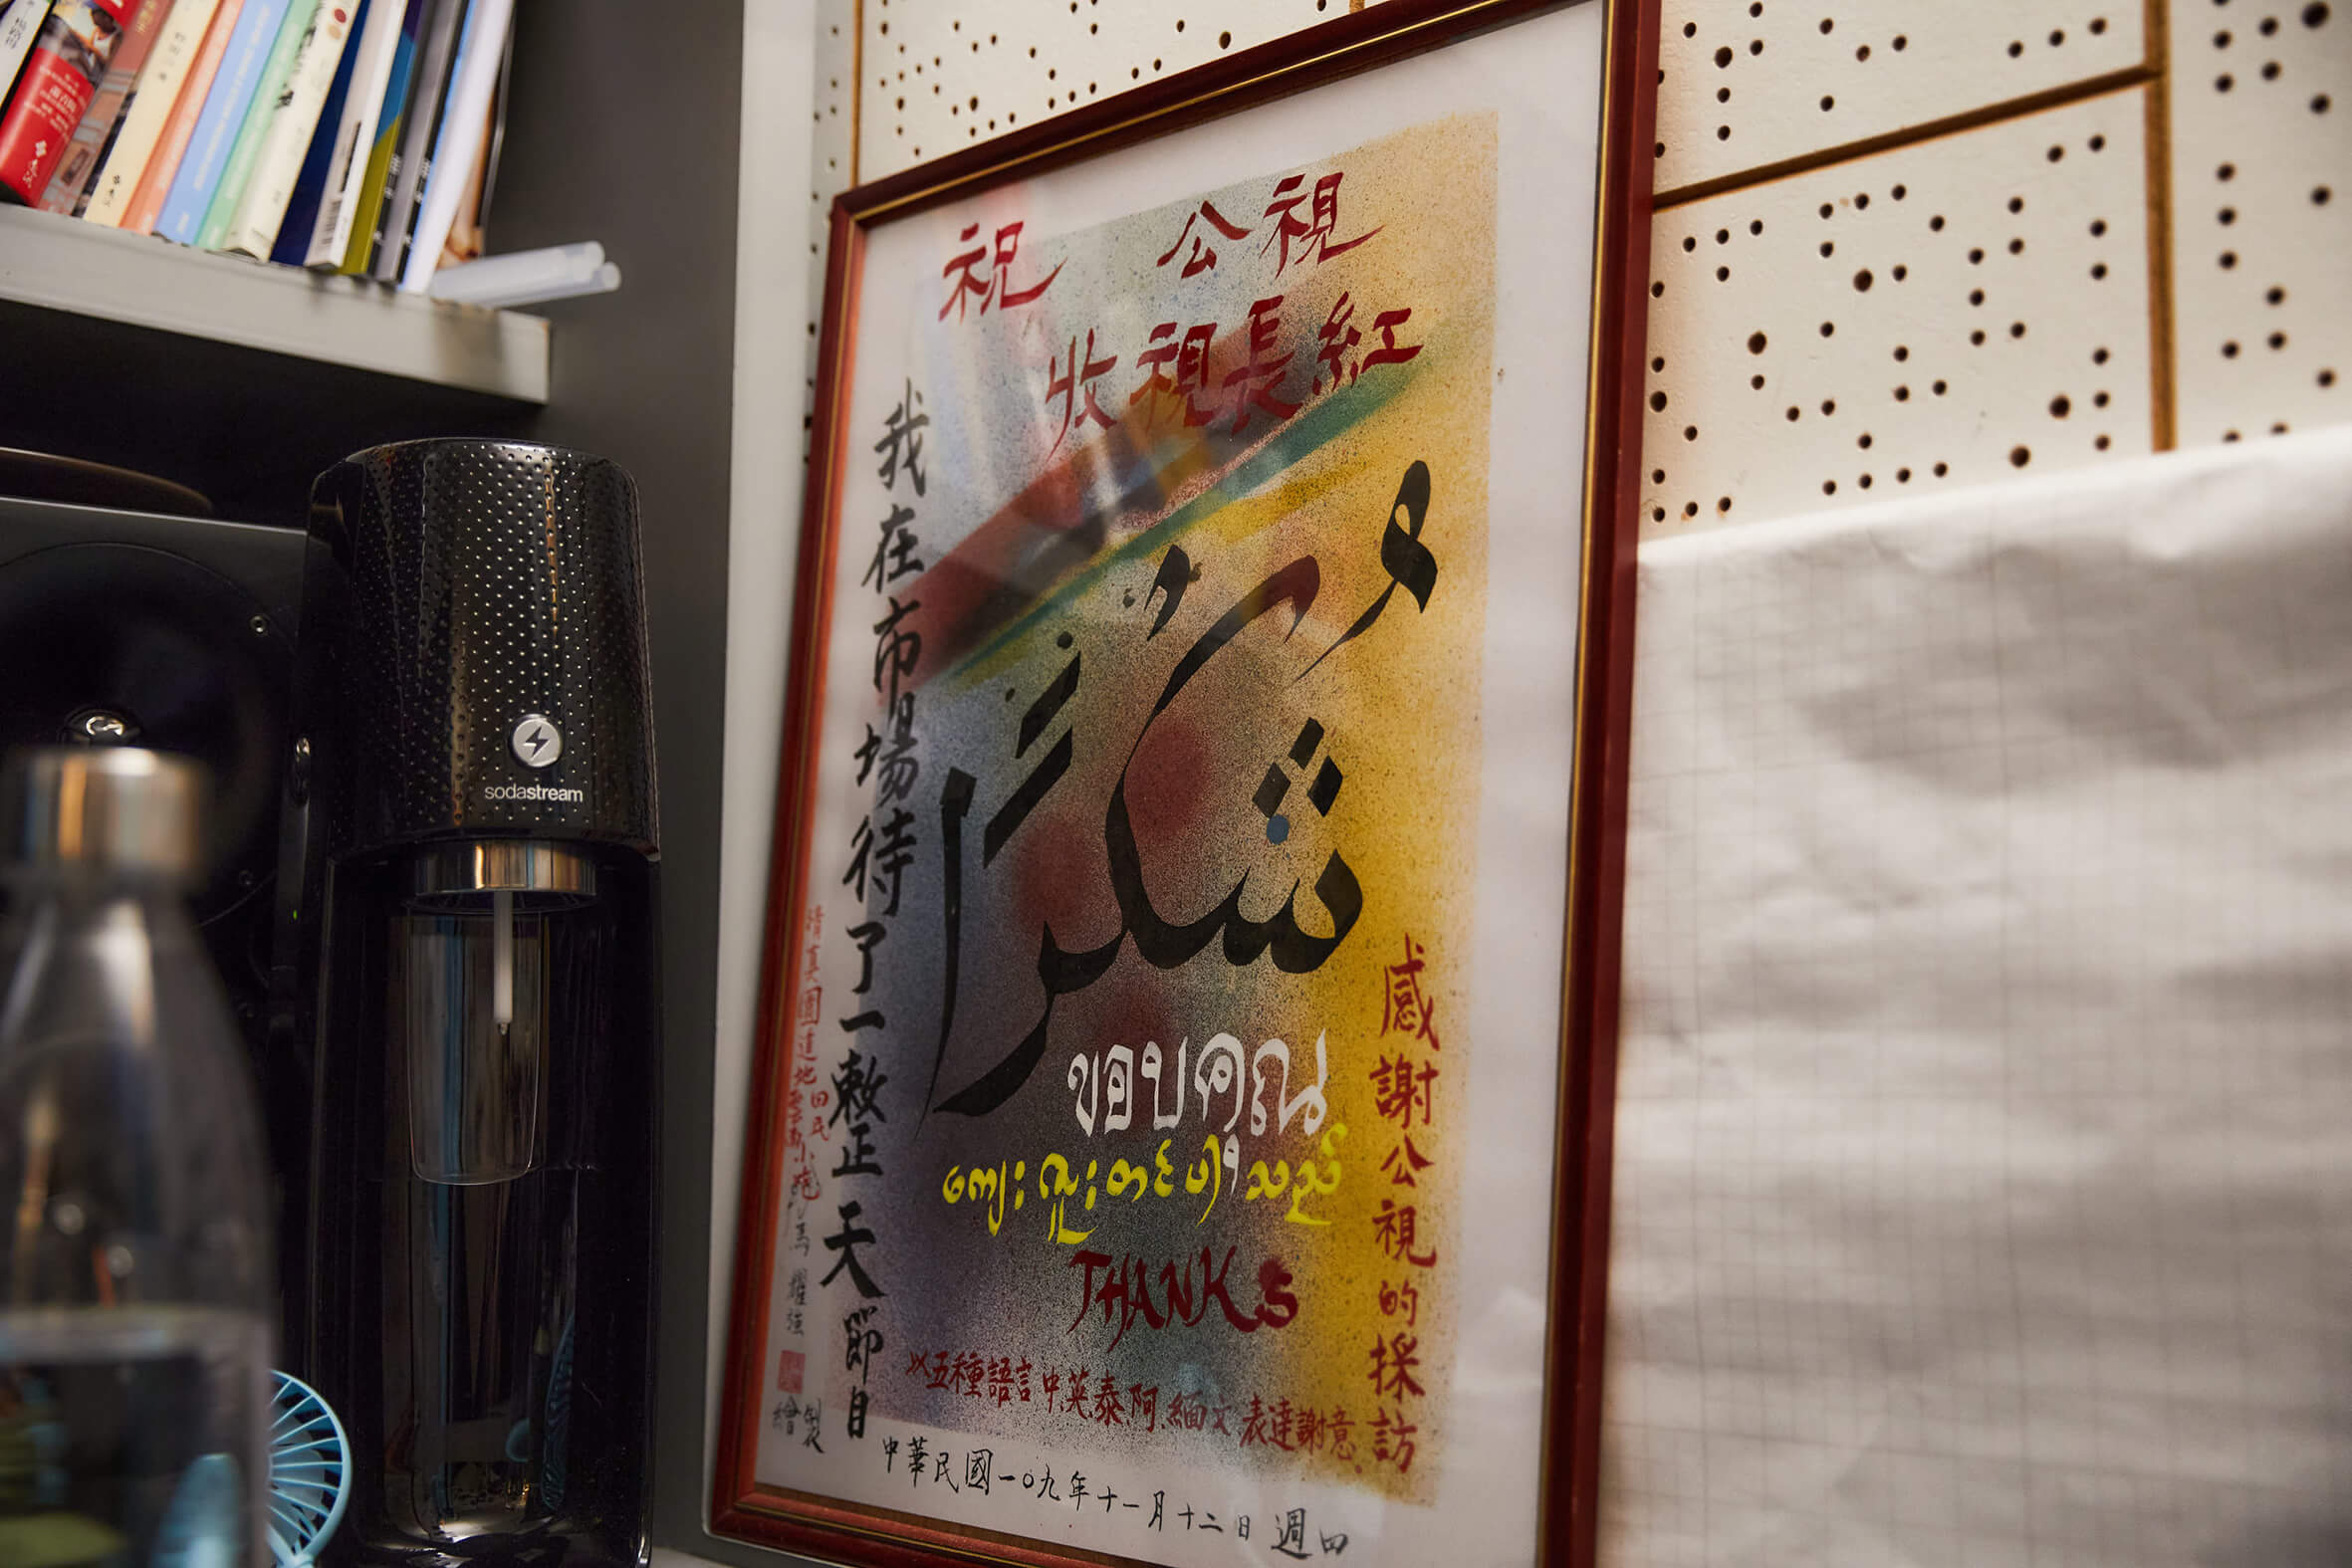 祝 公視
收視長紅
我在市場待了一整天節目
شُكْرًا
ขอบคุณ
ကျေးဇူးတင်ပါသည်
THANKS
感謝公視的採訪
以五種語言中.英.泰.阿.緬文表達謝意.
清真園道地雲南小吃
馬
繪製
中華民國一〇九年十一月十二日 週四
sodastream